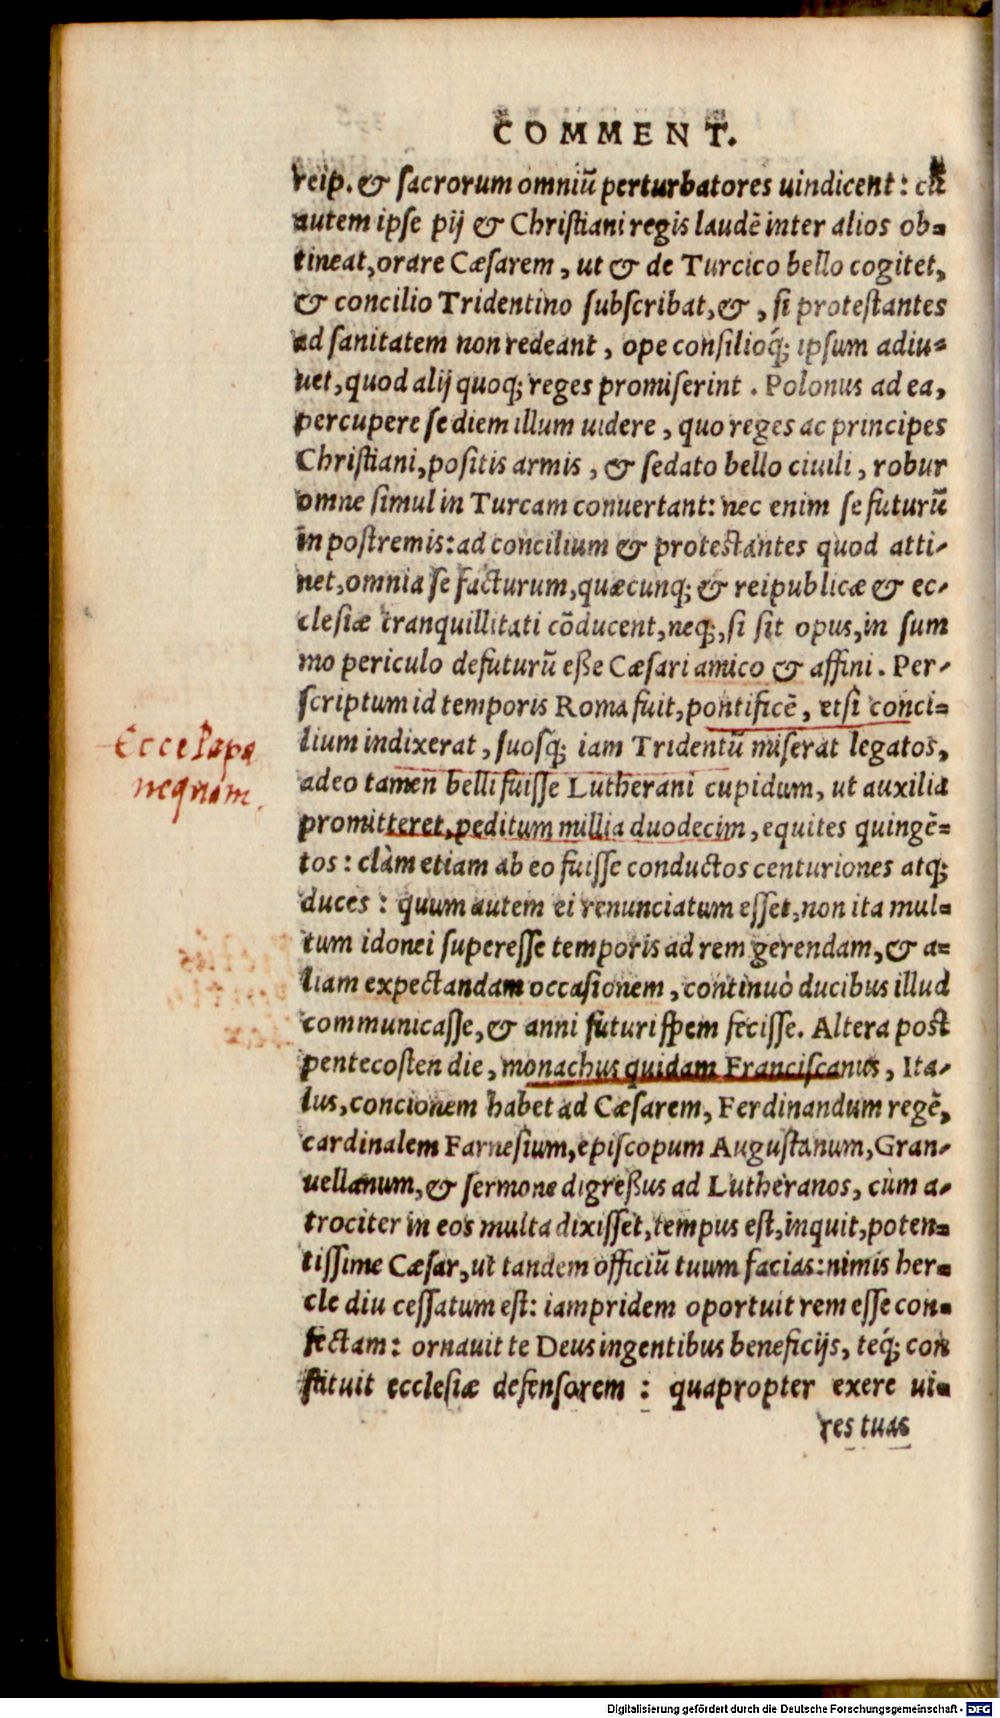 COMMENT.
reip. & sacrorum omniũ perturbatores uindicent: cũ
autem ipse pij & Christiani regis laudẽ inter alios ob-
tineat, orare Cæsarem, ut & de Turcico bello cogitet,
& concilio Tridentino subscribat, &, si protestantes
ad sanitatem non redeant, ope consilioq́; ipsum adiu-
uet, quod alij quoq; reges promiserint. Polonus ad ea,
percupere se diem illum uidere, quo reges ac principes
Christiani, positis armis, & sedato bello ciuili, robur
omne simul in Turcam conuertant: nec enim se futurũ
in postremis: ad concilium & protestantes quod atti-
net, omnia se facturum, quæcunq; & reipublicæ & ec-
clesiæ tranquillitati cõducent, neq;, si sit opus, in sum
mo periculo defuturũ eße Cæsari amico & affini. Per-
scriptum id temporis Roma fuit, pontificẽ, etsi conci-
lium indixerat, suosq́; iam Tridentũ miserat legatos,
adeo tamen belli fuisse Lutherani cupidum, ut auxilia
promitteret, peditum millia duodecim, equites quingẽ-
tos: clàm etiam ab eo fuisse conductos centuriones atq;
duces: quum autem ei renunciatum esset, non ita mul-
tum idonei superesse temporis ad rem gerendam, & a-
liam expectandam occasionem, continuò ducibus illud
communicasse, & anni futuri spem fecisse. Altera post
pentecosten die, monachus quidam Franciscanus, Ita-
lus, concionem habet ad Cæsarem, Ferdinandum regẽ,
cardinalem Farnesium, episcopum Augustanum, Gran-
uellanum, & sermone digreßus ad Lutheranos, cùm a-
trociter in eos multa dixisset, tempus est, inquit, poten-
tissime Cæsar, ut tandem officiũ tuum facias: nimis her-
cle diu cessatum est: iampridem oportuit rem esse con-
fectam: ornauit te Deus ingentibus beneficijs, teq́; con
stituit ecclesiæ defensorem: quapropter exere ui-
res tuas
Ecce Papa
nequam.
Digitalisierung gefördert durch die Deutsche Forschungsgemeinschaft - DFG